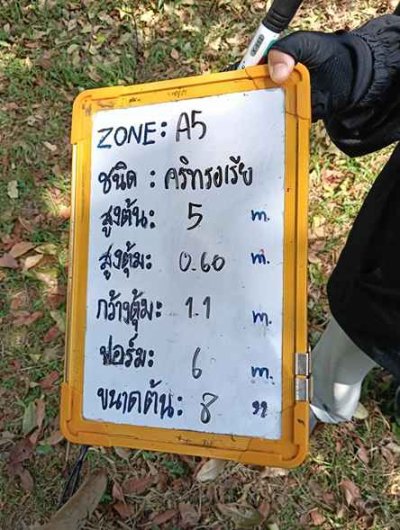 ZONE: A5
ชนิด : คริทรอเรีย
สูงต้น: 5 m.
สูงตุ้ม: 0.60 m.
กว้างตุ้ม: 1.1 m.
ฟอร์ม: 6 m.
ขนาดต้น: 8 "